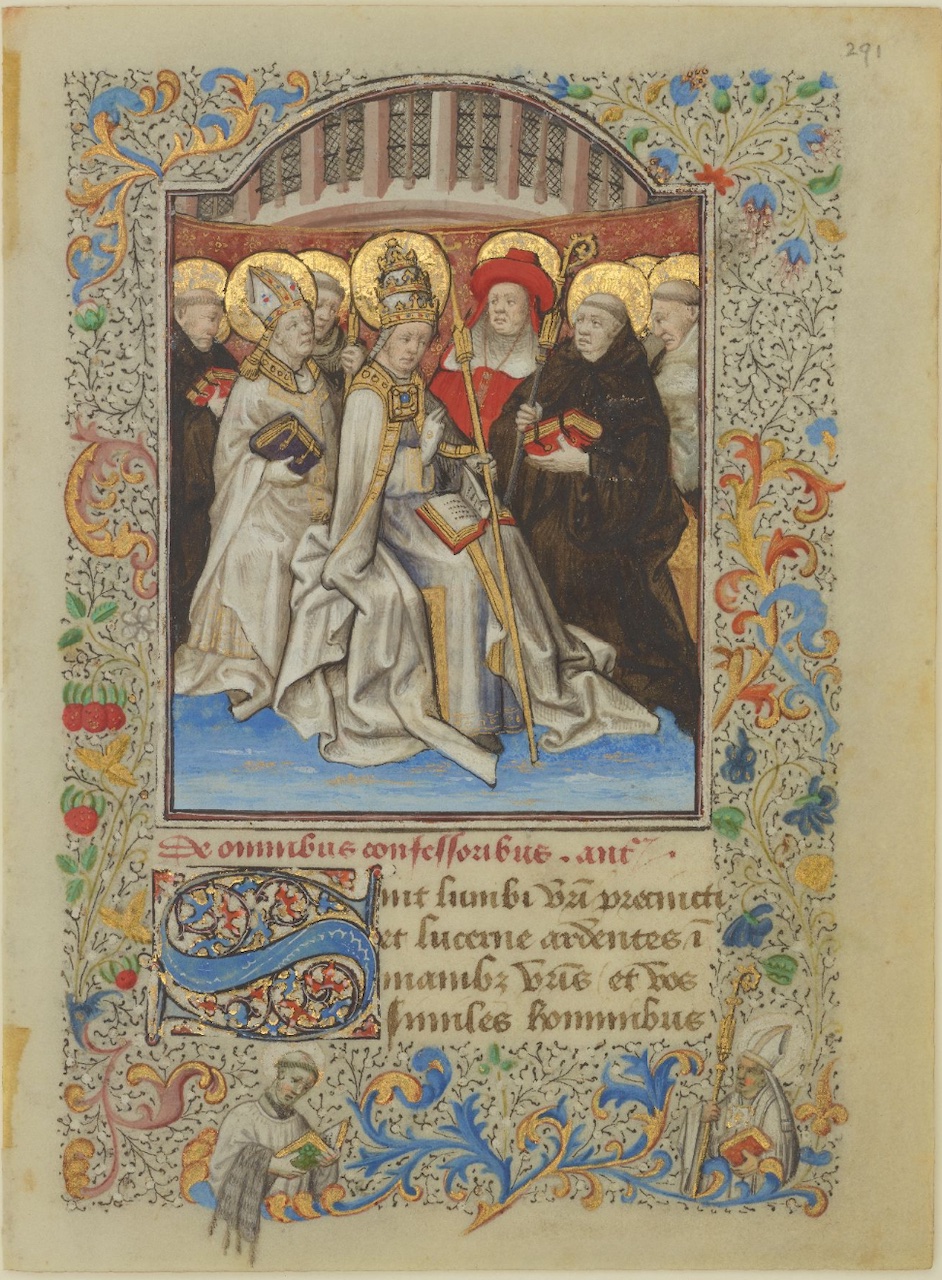 291
De omnibus confessoribus . antᵃ .
Sint lumbi vrī precincti
et lucerne ardentes ī
manibꝫ vrīs et vos
similes hominibus